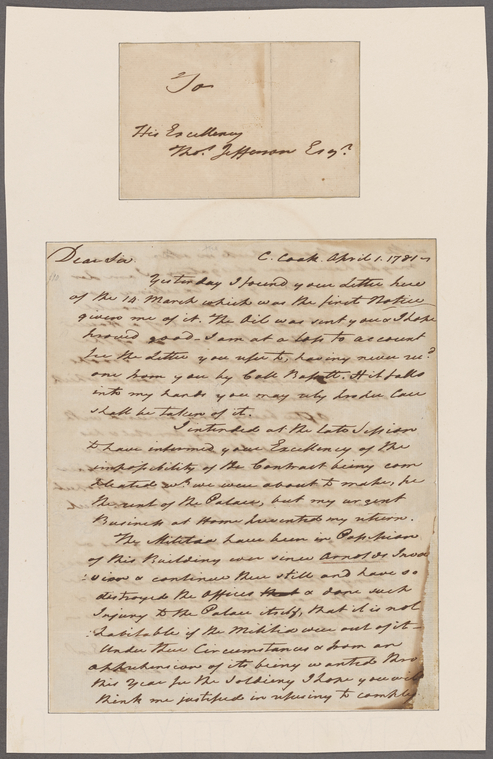 To
His Excellency
Tho.s Jefferson Esq.r
Dear Sir
C. Cook April 1. 1781
Yesterday I found your Letter here
of the 14 March which was the first Notice
given me of it. The Oil was sent you & I hope
proved good. I am at a loss to account
for the Letter you refer to, having never rec.d
one from you by Coll. Bassett. If it falls
into my hands you may rely proper Care
shall be taken of it.
I intended at the late Session
to have informed your Excellency of the
impossibility of the Contract being com
pleated wch. we were about to make, for
the rent of the Palace, but my urgent
Business at Home prevented my return.
The Militia have been in Possession
of this Building ever since Arnolds Inva
:sion & continue there still and have so
destroyed the Offices & done such
Injury to the Palace itself, that it is not
habitable if the Militia were out of it
Under these Circumstances & from an
apprehension of its being wanted thro
this Year for the Soldiery I hope you will
think me justified in refusing to comple